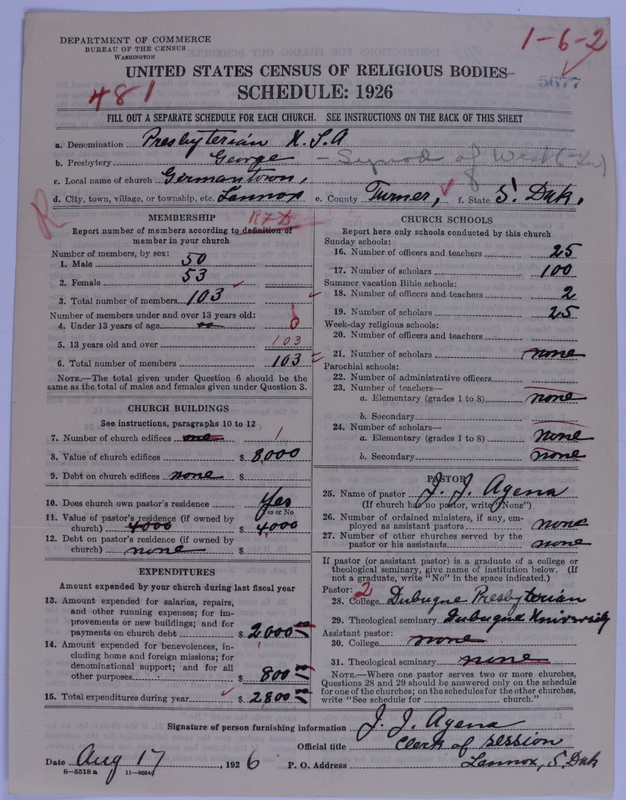 DEPARTMENT OF COMMERCE
BUREAU OF THE CENSUS
WASHINGTON
1-6-2
5677
UNITED STATES CENSUS OF RELIGIOUS BODIES
481
SCHEDULE: 1926
FILL OUT A SEPARATE SCHEDULE FOR EACH CHURCH. SEE INSTRUCTIONS ON THE BACK OF THIS SHEET
a. Denomination Presbyterian U.S.A
b. Presbytery George - Synod of West
c. Local name of church Germantown,
d. City, town, village, or township, etc. Lennox e. County Turner, f. State S. Dak.
R
MEMBERSHIP
Report number of members according to definition of
member in your church
Number of members, by sex:
1. Male 50
2. Female 53
3. Total number of members 103
Number of members under and over 13 years old:
4. Under 13 years of age 0
5. 13 years old and over 103
6. Total number of members 103
NOTE.—The total given under Question 6 should be the
same as the total of males and females given under Question 3.
CHURCH BUILDINGS
See instructions, paragraphs 10 to 12
7. Number of church edifices one 1
8. Value of church edifices $ 8,000
9. Debt on church edifices none $
10. Does church own pastor's residence Yes
Yes or No
11. Value of pastor's residence (if owned by
church) 4000 $ 4,000
12. Debt on pastor's residence (if owned by
church) none $
EXPENDITURES
Amount expended by your church during last fiscal year
13. Amount expended for salaries, repairs,
and other running expenses; for im-
provements or new buildings; and for
payments on church debt $ 2000 00
14. Amount expended for benevolences, in-
cluding home and foreign missions; for
denominational support; and for all
other purposes $ 800 00
15. Total expenditures during year $ 2,800 00
CHURCH SCHOOLS
Report here only schools conducted by this church
Sunday schools:
16. Number of officers and teachers 25
17. Number of scholars 100
Summer vacation Bible schools:
18. Number of officers and teachers 2
19. Number of scholars 25
Week-day religious schools:
20. Number of officers and teachers
21. Number of scholars none
Parochial schools:
22. Number of administrative officers
23. Number of teachers—
a. Elementary (grades 1 to 8) none
b. Secondary
24. Number of scholars—
a. Elementary (grades 1 to 8) none
b. Secondary none
PASTOR
25. Name of pastor J. J. Agena
(If church has no pastor, write "None")
26. Number of ordained ministers, if any, em-
ployed as assistant pastors none
27. Number of other churches served by the
pastor or his assistants none
If pastor (or assistant pastor) is a graduate of a college or
theological seminary, give name of institution below. (If
not a graduate, write "No" in the space indicated.)
Pastor: 2
28. College Dubuque Presbyterian
29. Theological seminary Dubuque University
Assistant pastor:
30. College none
31. Theological seminary none
NOTE.—Where one pastor serves two or more churches,
Questions 28 and 29 should be answered only on the schedule
for one of the churches; on the schedules for the other churches,
write "See schedule for church."
Signature of person furnishing information J. J. Agena
Official title Clerk of session
Date Aug 17, 1926 P. O. Address Lennox, S. Dak
8—5518 a